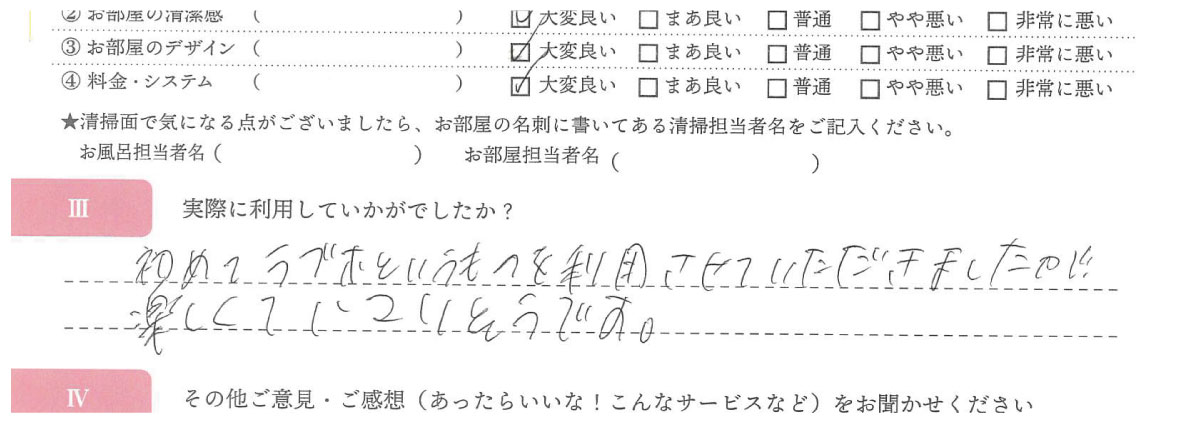 ② お部屋の清潔感 ( ) 大変良い まあ良い 普通 やや悪い 非常に悪い
③ お部屋のデザイン ( ) 大変良い まあ良い 普通 やや悪い 非常に悪い
④ 料金・システム ( ) 大変良い まあ良い 普通 やや悪い 非常に悪い
★清掃面で気になる点がございましたら、お部屋の名刺に書いてある清掃担当者名をご記入ください。
お風呂担当者名 ( ) お部屋担当者名 ( )
Ⅲ 実際に利用していかがでしたか？
初めてラブホというものを利用させていただきましたが!!
楽しくてハマりそうです。
Ⅳ その他ご意見・ご感想（あったらいいな！こんなサービスなど）をお聞かせください